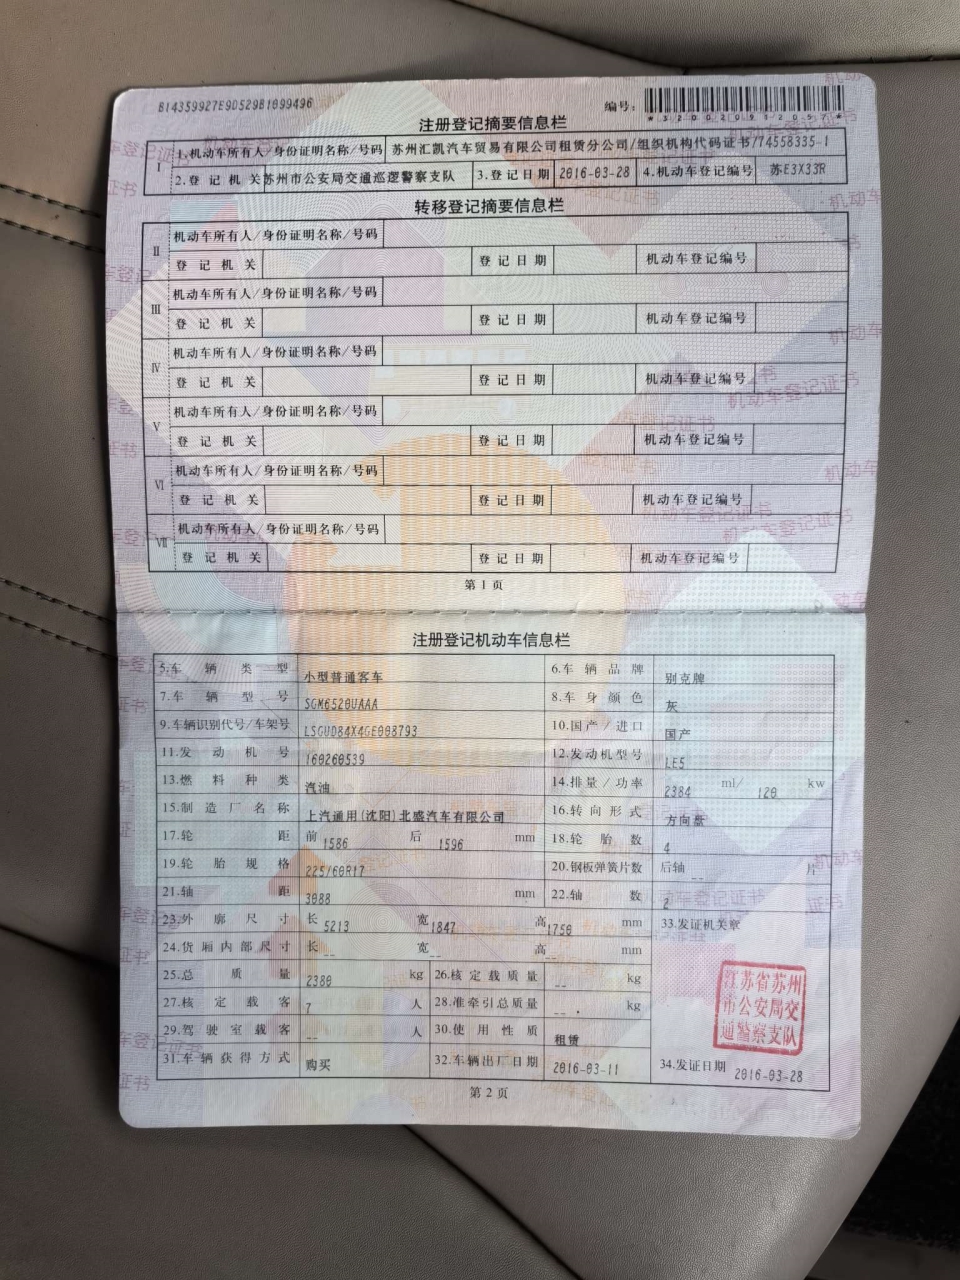 B14359927E9D529B1099496
编号:
*320020912057*
注册登记摘要信息栏
Ⅰ 1.机动车所有人/身份证明名称/号码 苏州汇凯汽车贸易有限公司租赁分公司/组织机构代码证书/74558335-1
2.登记机关 苏州市公安局交通巡逻警察支队 3.登记日期 2016-03-28 4.机动车登记编号 苏E3X33R
转移登记摘要信息栏
Ⅱ 机动车所有人/身份证明名称/号码
登记机关 登记日期 机动车登记编号
Ⅲ 机动车所有人/身份证明名称/号码
登记机关 登记日期 机动车登记编号
Ⅳ 机动车所有人/身份证明名称/号码
登记机关 登记日期 机动车登记编号
Ⅴ 机动车所有人/身份证明名称/号码
登记机关 登记日期 机动车登记编号
Ⅵ 机动车所有人/身份证明名称/号码
登记机关 登记日期 机动车登记编号
Ⅶ 机动车所有人/身份证明名称/号码
登记机关 登记日期 机动车登记编号
第1页
注册登记机动车信息栏
5.车辆类型 小型普通客车 6.车辆品牌 别克牌
7.车辆型号 SGM6520UAAA 8.车身颜色 灰
9.车辆识别代号/车架号 LSGUD84X4GE008793 10.国产/进口 国产
11.发动机号 160260539 12.发动机型号 LE5
13.燃料种类 汽油 14.排量/功率 2384 ml/ 120 kw
15.制造厂名称 上汽通用(沈阳)北盛汽车有限公司 16.转向形式 方向盘
17.轮距 前 1586 后 1596 mm 18.轮胎数 4
19.轮胎规格 225/60R17 20.钢板弹簧片数 后轴 -- 片
21.轴距 3088 mm 22.轴数 2
23.外廓尺寸 长 5213 宽 1847 高 1750 mm 33.发证机关章
24.货厢内部尺寸 长 -- 宽 -- 高 -- mm
25.总质量 2380 kg 26.核定载质量 -- kg
27.核定载客 7 人 28.准牵引总质量 -- kg
29.驾驶室载客 -- 人 30.使用性质 租赁
31.车辆获得方式 购买 32.车辆出厂日期 2016-03-11 34.发证日期 2016-03-28
江苏省苏州
市公安局交
通警察支队
第2页